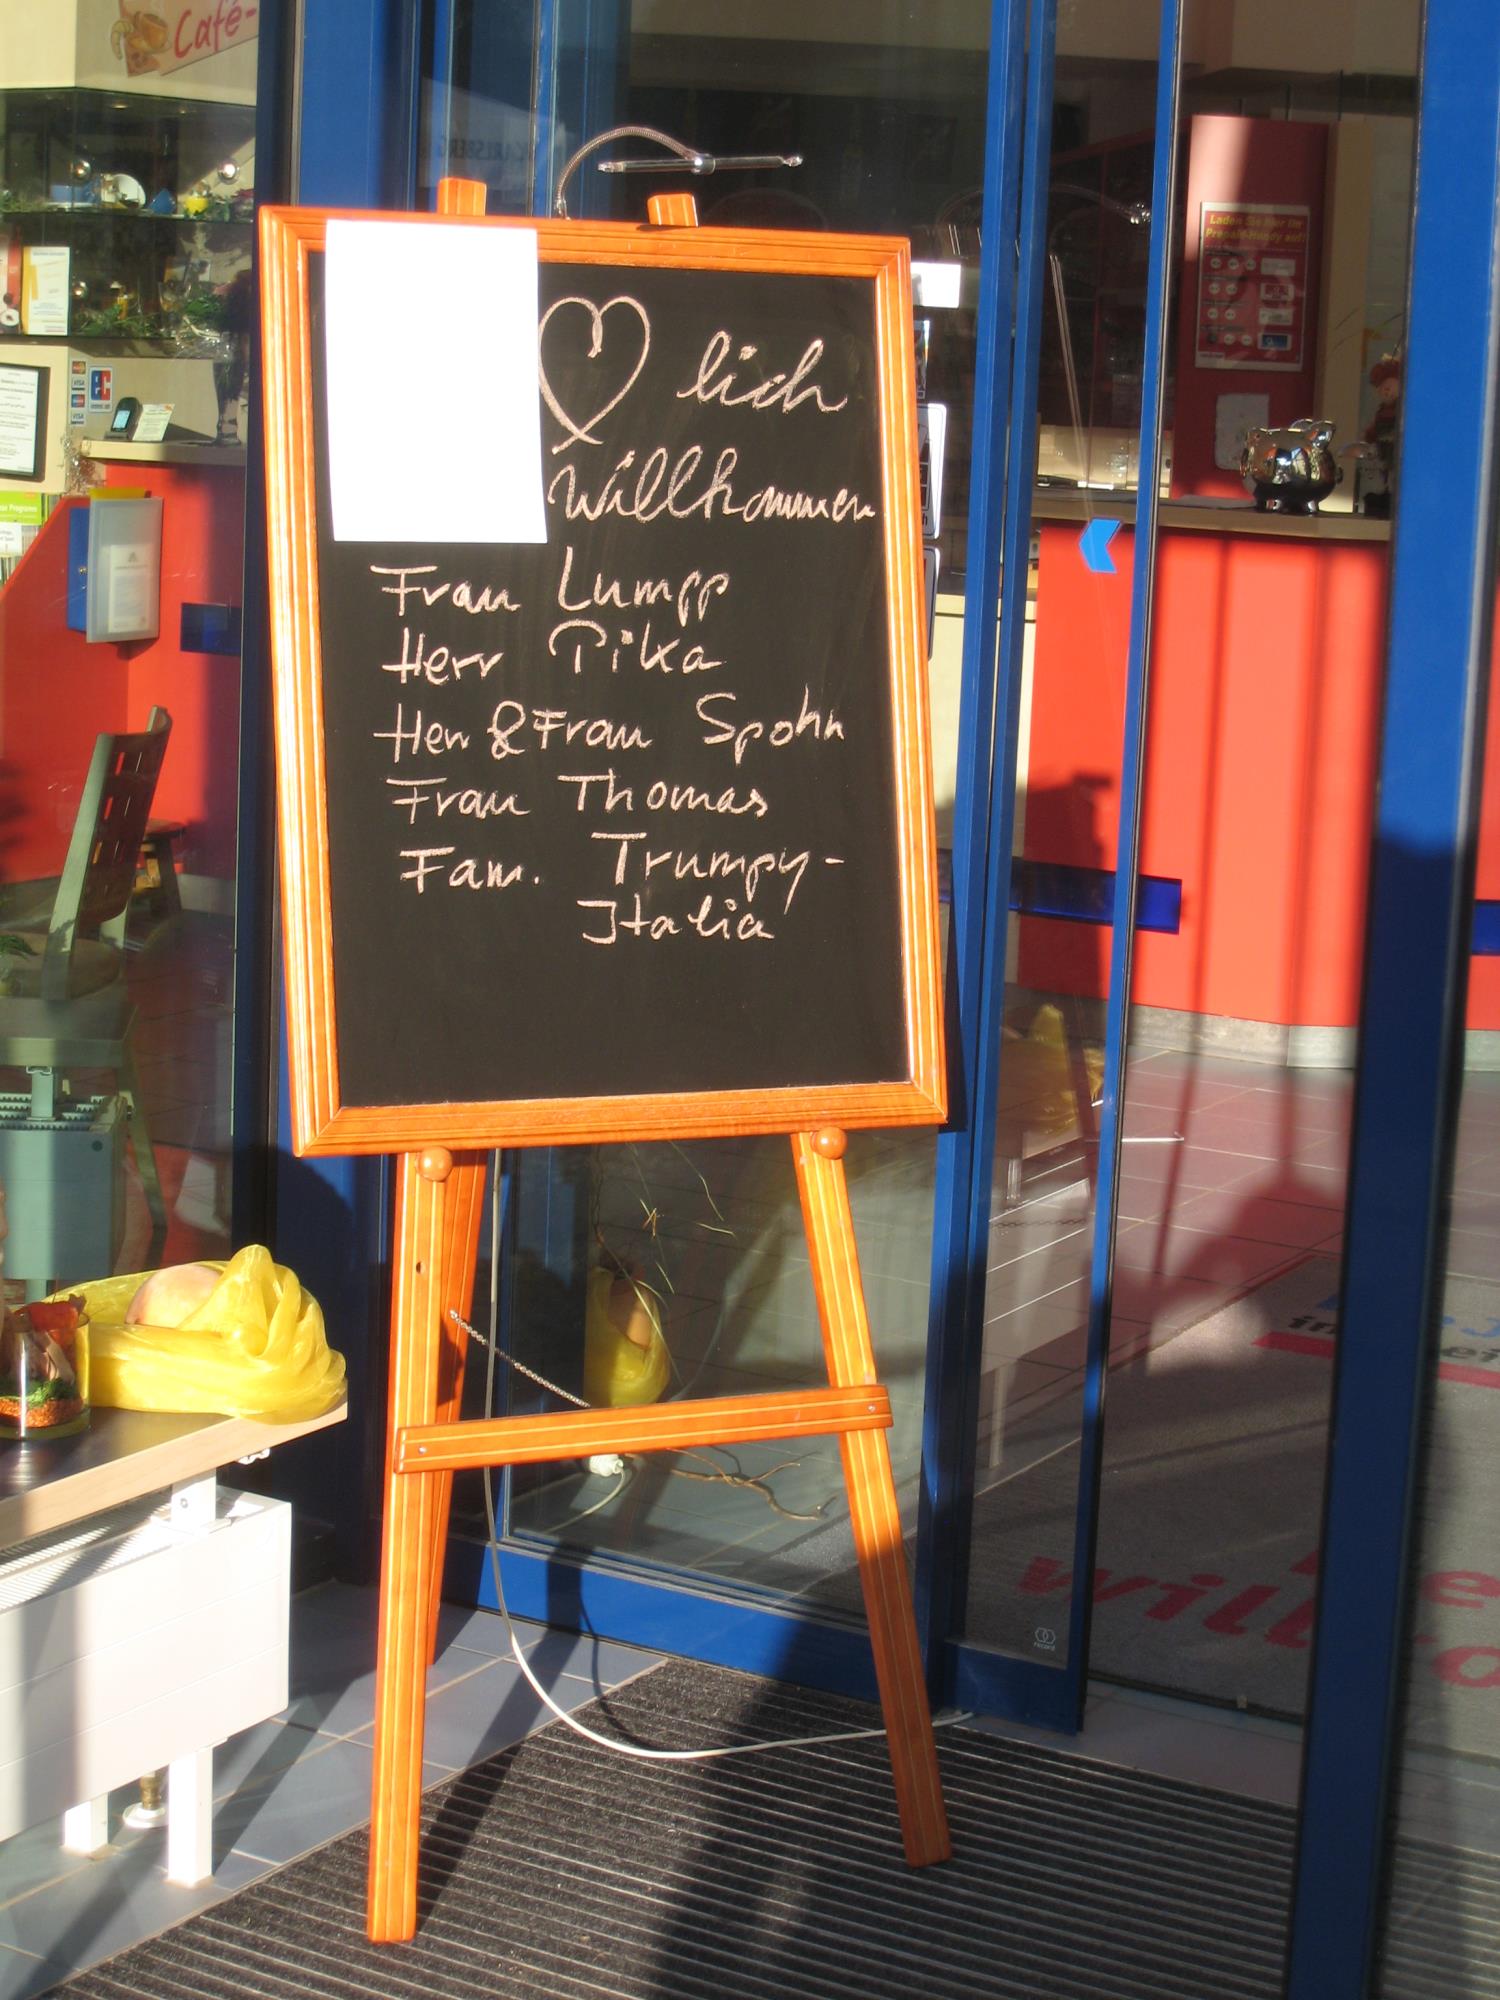 Café-
CARLSBERG
Laden Sie hier Ihr
Prepaid-Handy auf!
♡lich
Willkommen
Frau Lumpp
Herr Pika
Herr & Frau Spohn
Frau Thomas
Fam. Trumpy-
Italia
record